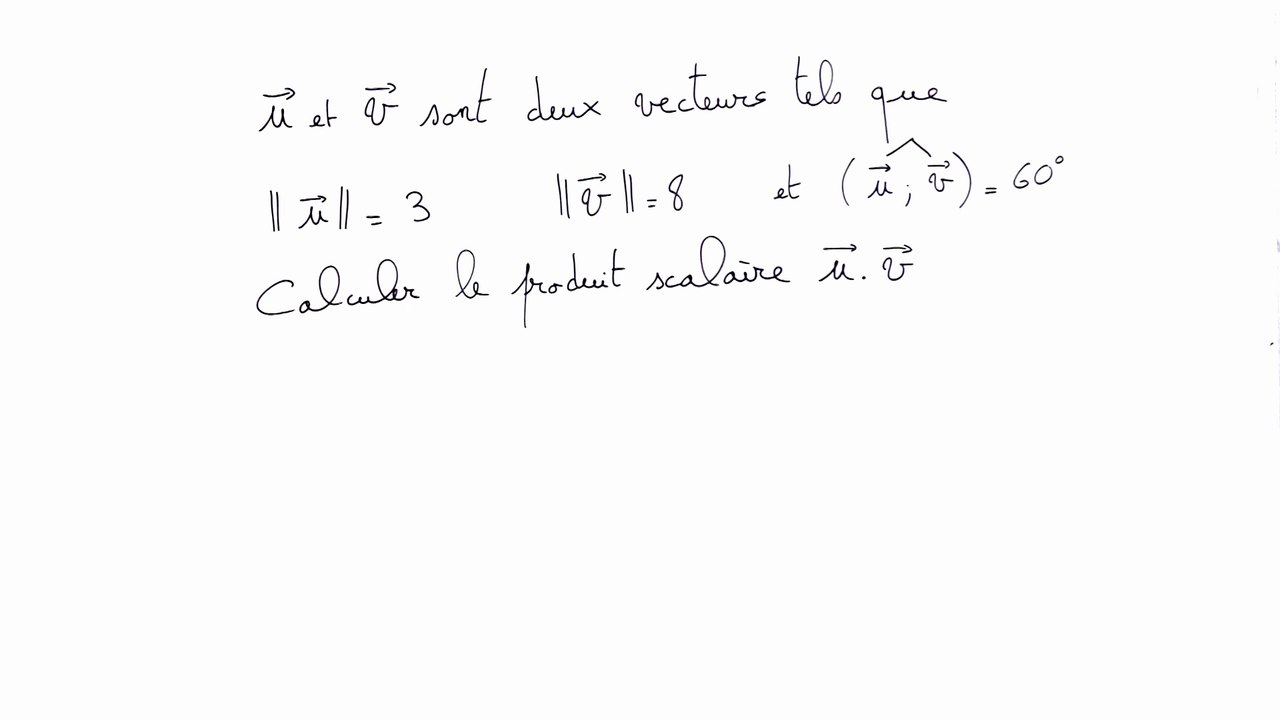 u⃗ et v⃗ sont deux vecteurs tels que
‖u⃗‖ = 3 ‖v⃗‖ = 8 et (u⃗ ; v⃗) = 60°
Calculer le produit scalaire u⃗ . v⃗